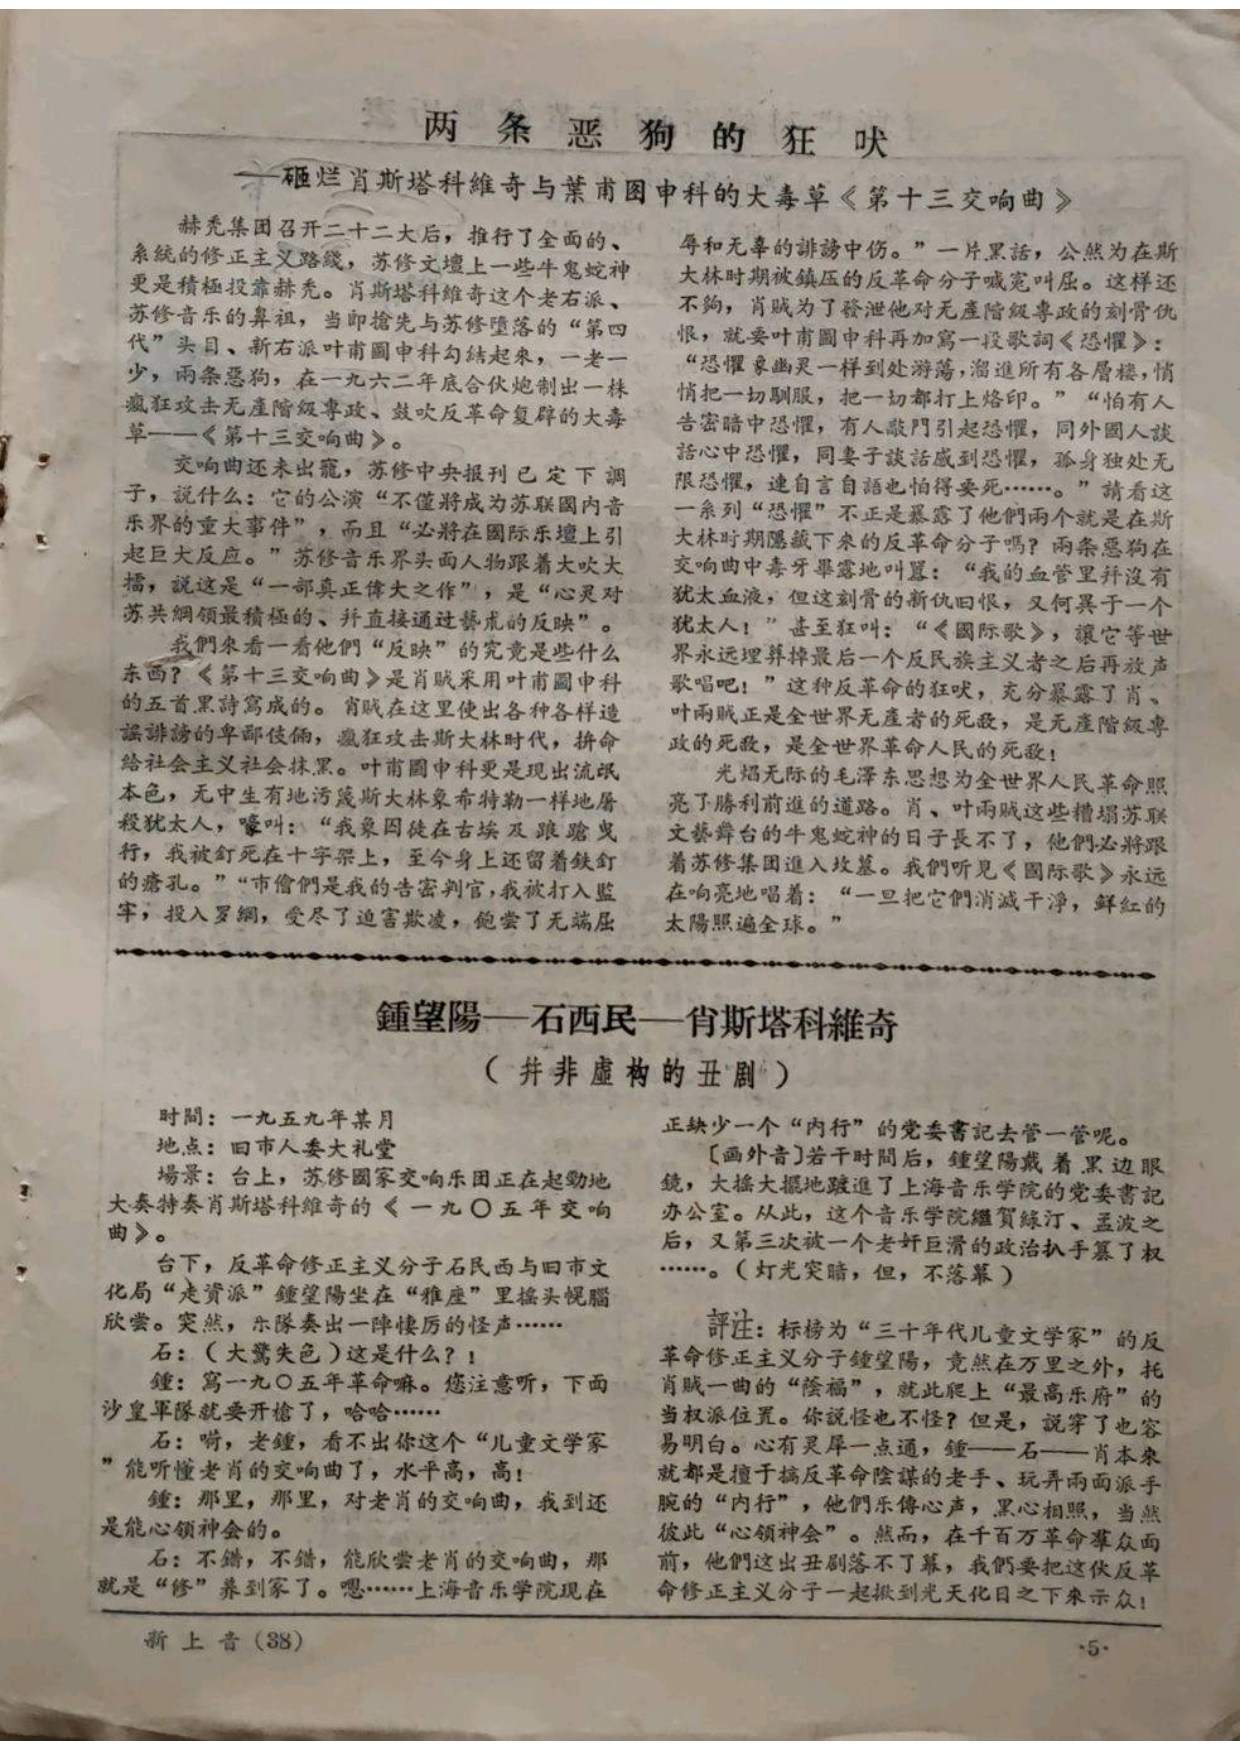 两条恶狗的狂吠
——砸烂肖斯塔科維奇与葉甫图申科的大毒草《第十三交响曲》
赫秃集团召开二十二大后，推行了全面的、
系統的修正主义路綫，苏修文壇上一些牛鬼蛇神
更是積極投靠赫秃。肖斯塔科維奇这个老右派、
苏修音乐的鼻祖，当即搶先与苏修墮落的“第四
代”头目、新右派叶甫圖申科勾結起來，一老一
少，兩条惡狗，在一九六二年底合伙炮制出一株
瘋狂攻击无產階級專政、鼓吹反革命复辟的大毒
草——《第十三交响曲》。
交响曲还未出寵，苏修中央报刊已定下調
子，説什么：它的公演“不僅將成为苏联國内音
乐界的重大事件”，而且“必將在國际乐壇上引
起巨大反应。”苏修音乐界头面人物跟着大吹大
擂，説这是“一部真正偉大之作”，是“心灵对
苏共綱領最積極的、幷直接通过藝朮的反映”。
我們來看一看他們“反映”的究竟是些什么
东西？《第十三交响曲》是肖贼采用叶甫圖申科
的五首黑詩寫成的。肖贼在这里使出各种各样造
謡誹謗的卑鄙伎倆，瘋狂攻击斯大林时代，拚命
給社会主义社会抹黑。叶甫圖申科更是現出流氓
本色，无中生有地污蔑斯大林象希特勒一样地屠
殺犹太人，嚎叫：“我象囚徒在古埃及踉蹌曳
行，我被釘死在十字架上，至今身上还留着鉄釘
的瘡孔。”“市儈們是我的告密判官，我被打入監
牢，投入罗網，受尽了迫害欺凌，飽尝了无端屈
辱和无辜的誹謗中伤。”一片黑話，公然为在斯
大林时期被鎮压的反革命分子喊冤叫屈。这样还
不夠，肖贼为了發泄他对无產階級專政的刻骨仇
恨，就要叶甫圖申科再加寫一段歌詞《恐懼》：
“恐懼象幽灵一样到处游蕩，溜進所有各層楼，悄
悄把一切馴服，把一切都打上烙印。”“怕有人
告密暗中恐懼，有人敲門引起恐懼，同外國人談
話心中恐懼，同妻子談話感到恐懼，孤身独处无
限恐懼，連自言自語也怕得要死……。”請看这
一系列“恐懼”不正是暴露了他們兩个就是在斯
大林时期隱藏下來的反革命分子嗎？兩条惡狗在
交响曲中毒牙畢露地叫囂：“我的血管里幷沒有
犹太血液，但这刻骨的新仇旧恨，又何異于一个
犹太人！”甚至狂叫：“《國际歌》，讓它等世
界永远埋葬掉最后一个反民族主义者之后再放声
歌唱吧！”这种反革命的狂吠，充分暴露了肖、
叶兩贼正是全世界无產者的死敌，是无產階級專
政的死敌，是全世界革命人民的死敌！
光焰无际的毛澤东思想为全世界人民革命照
亮了勝利前進的道路。肖、叶兩贼这些糟塌苏联
文藝舞台的牛鬼蛇神的日子長不了，他們必將跟
着苏修集团進入坟墓。我們听見《國际歌》永远
在响亮地唱着：“一旦把它們消滅干淨，鮮紅的
太陽照遍全球。”
鍾望陽——石西民——肖斯塔科維奇
（幷非虛构的丑剧）
时間：一九五九年某月
地点：旧市人委大礼堂
場景：台上，苏修國家交响乐团正在起勁地
大奏特奏肖斯塔科維奇的《一九〇五年交响
曲》。
台下，反革命修正主义分子石民西与旧市文
化局“走資派”鍾望陽坐在“雅座”里搖头幌腦
欣尝。突然，乐隊奏出一陣悽厉的怪声……
石：（大驚失色）这是什么？！
鍾：寫一九〇五年革命嘛。您注意听，下面
沙皇軍隊就要开槍了，哈哈……
石：嗬，老鍾，看不出你这个“儿童文学家
”能听懂老肖的交响曲了，水平高，高！
鍾：那里，那里，对老肖的交响曲，我到还
是能心領神会的。
石：不錯，不錯，能欣尝老肖的交响曲，那
就是“修”养到家了。嗯……上海音乐学院現在
正缺少一个“内行”的党委書記去管一管呢。
〔画外音〕若干时間后，鍾望陽戴着黑边眼
鏡，大搖大擺地踱進了上海音乐学院的党委書記
办公室。从此，这个音乐学院繼賀綠汀、孟波之
后，又第三次被一个老奸巨滑的政治扒手篡了权
……。（灯光突暗，但，不落幕）
評注：标榜为“三十年代儿童文学家”的反
革命修正主义分子鍾望陽，竟然在万里之外，托
肖贼一曲的“蔭福”，就此爬上“最高乐府”的
当权派位置。你說怪也不怪？但是，説穿了也容
易明白。心有灵犀一点通，鍾——石——肖本來
就都是擅于搞反革命陰謀的老手、玩弄兩面派手
腕的“内行”，他們乐傳心声，黑心相照，当然
彼此“心領神会”。然而，在千百万革命羣众面
前，他們这出丑剧落不了幕，我們要把这伙反革
命修正主义分子一起揪到光天化日之下來示众！
新上音（38）
·5·